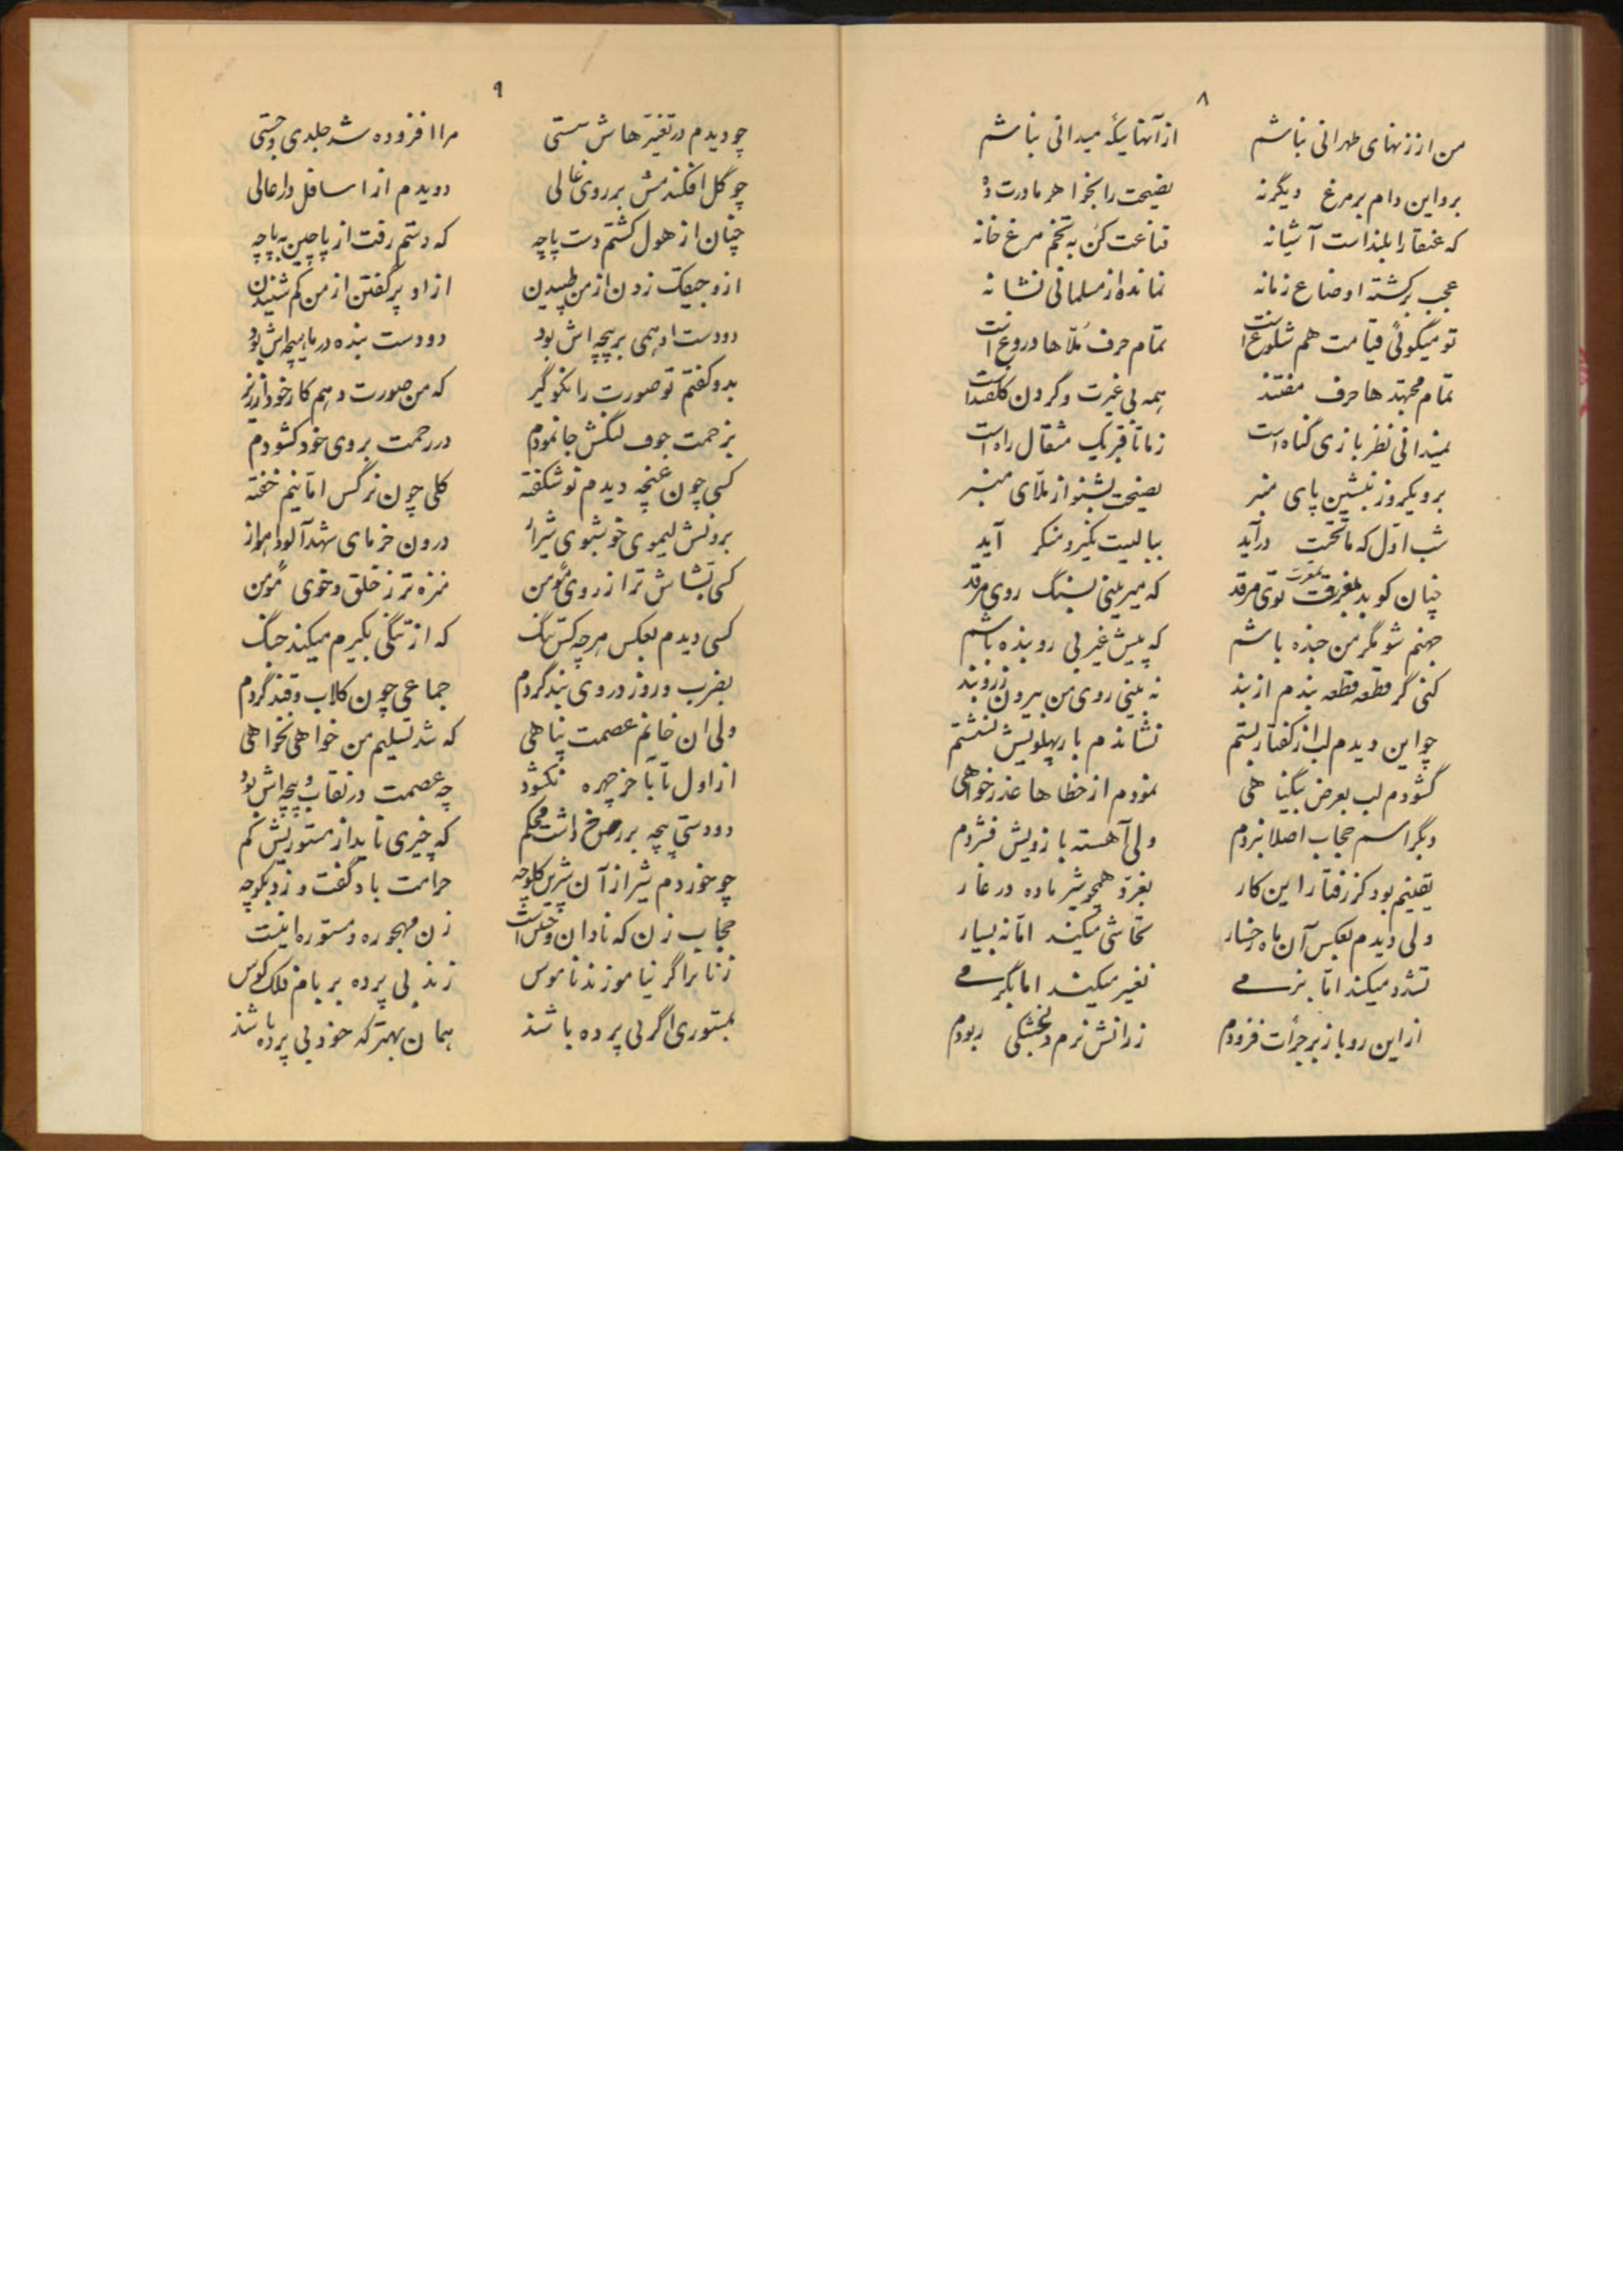 ۸
من از زنهای طهرانی نباشم از آنهائیکه میدانی نباشم
برو این دام بر مرغ دیگر نه نصیحت را بخواهر مادرت ده
که عنقا را بلند است آشیانه قناعت کن به تخم مرغ خانه
عجب برگشته اوضاع زمانه نمانده از مسلمانی نشانه
تو میگوئی قیامت هم شلوغ است تمام حرف ملّاها دروغ است
تمام مجتهدها حرف مفتند همه بی غیرت و گردن کلفتند
نمیدانی نظر بازی گناه است ز ما تا قبر یک مثقال راه است
برو یکروز بنشین پای منبر نصیحت بشنو از ملّای منبر
شب اوّل که ماتحت درآید ببالینت نکیر و منکر آید
چنان کوبد بمغزت توی مرقد که میرینی بسنگ روی مرقد
جهنم شو مگر من جنده باشم که پیش غیر بی روبنده باشم
کنی گر قطعه قطعه بندم از بند نه بینی روی من بیرون ز روبند
چو این دیدم لب از گفتار بستم نشاندم باز پهلویش نشستم
گشودم لب بعرض بیگناهی نمودم از خطاها عذر خواهی
دگر اسم حجاب اصلا نبردم ولی آهسته بازویش فشردم
یقینم بود کز رفتار این کار بغرّد همچو شیر ماده در غار
ولی دیدم بعکس آن ماه رخسار تحاشی میکند امّا نه بسیار
تشدد میکند امّا بنرمی تغیر میکند اما بگرمی
از این رو باز بر جرأت فزودم ز رانش نرم و خشکی ربودم
۹
چو دیدم در تغیّرهاش سستی مرا افزوده شد جلدی و چستی
چو گل افکندمش بر روی غالی دویدم از اسافل در اعالی
چنان از هول گشتم دست پاچه که دستم رفت از پاچین به پاچه
ازو جیغک زدن از من طپیدن از او پر گفتن از من کم شنیدن
دو دست او همی بر پیچه اش بود دو دست بنده در ماهیچه اش بود
بدو گفتم تو صورت را نکو گیر که من صورت دهم کار خود از زیر
بزحمت جوف لنگش جا نمودم در رحمت بروی خود گشودم
کسی چون غنچه دیدم نو شکفته گلی چون نرگس امّا نیم خفته
برونش لیموی خوشبوی شیراز درون خرمای شهد آلود اهواز
کسی بشّاش تر از روی مؤمن منزه تر ز خلق و خوی مؤمن
کسی دیدم بعکس هر چه کس تنگ که از تنگی بکیرم میکند جنگ
بضرب و زور در وی بند کردم جماعی چون گلاب و قند کردم
ولی ان خانم عصمت پناهی که شد تسلیم من خواهی نخواهی
از اول تا بآخر چهره نگشود چه عصمت در نقاب و پیچه اش بود
دو دستی پیچه بر رخ داشت محکم که چیزی ناید از مستوریش کم
چو خوردم شیر از آن شیرین کلوچه حرامت باد گفت و زد بکوچه
حجاب زن که نادان و خلس است زن مهجوره و مستوره اینست
زنانرا گر نیاموزند ناموس زند بی پرده بر بام فلک کوس
بمستوری اگر بی پرده باشد همان بهتر که خود بی پرده باشد